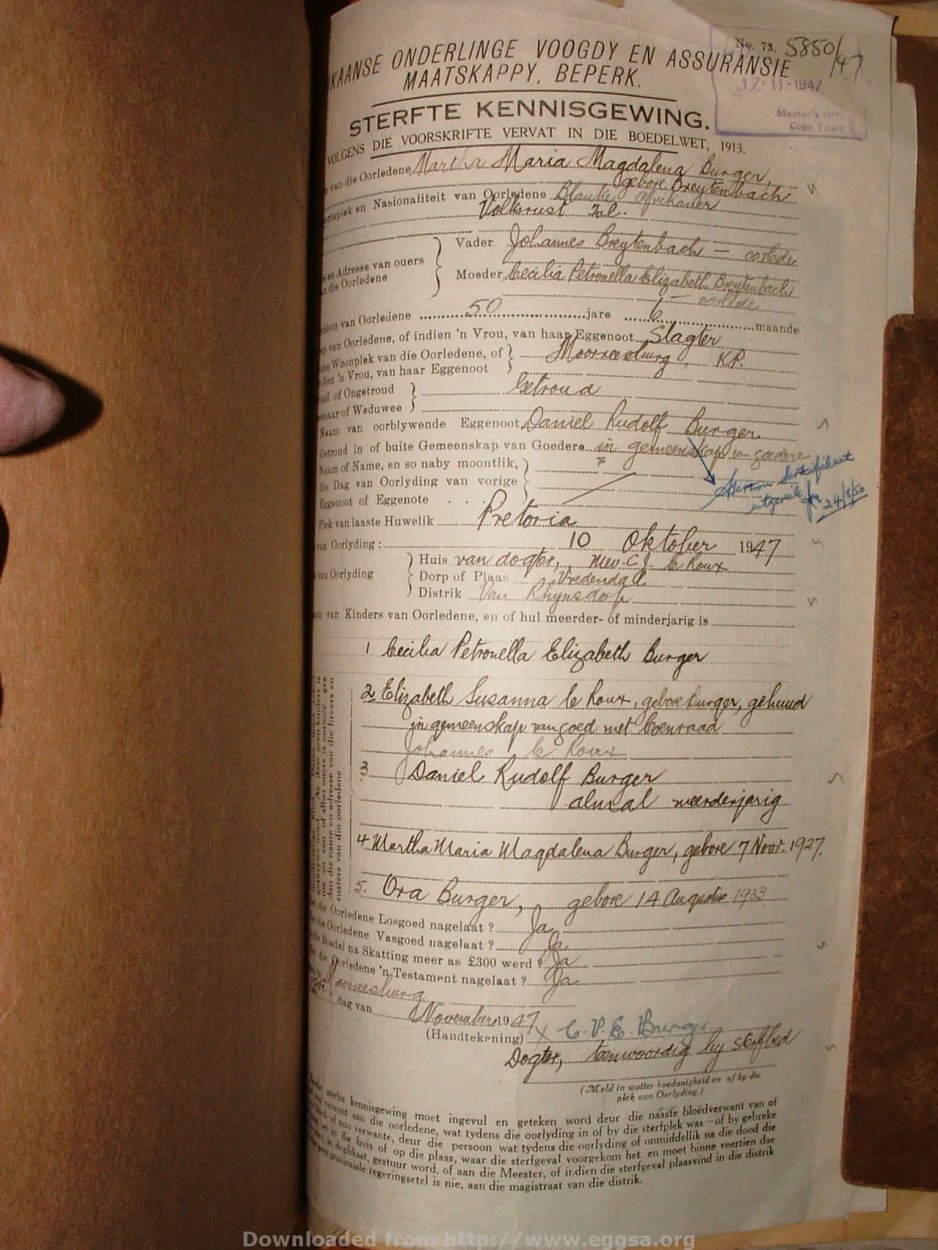 No. 73. 5850/47
KAANSE ONDERLINGE VOOGDY EN ASSURANSIE
MAATSKAPPY, BEPERK.
17-11-1947
Master's Office
Cape Town
STERFTE KENNISGEWING.
VOLGENS DIE VOORSKRIFTE VERVAT IN DIE BOEDELWET, 1913.
van die Oorledene Martha Maria Magdalena Burger,
gebore Breytenbach
en Nasionaliteit van Oorledene Blanke Afrikaner
Volksrust Tvl.
Vader Johannes Breytenbach — oorlede
en Adresse van ouers
die Oorledene
Moeder Cecilia Petronella Elizabeth Breytenbach
— oorlede
van Oorledene 50 jare 6 maande
van Oorledene, of indien 'n Vrou, van haar Eggenoot Slagter
Woonplek van die Oorledene, of
'n Vrou, van haar Eggenoot
Moorreesburg, K.P.
of Ongetroud
of Weduwee
Getroud
Naam van oorblywende Eggenoot Daniel Rudolf Burger
Getroud in of buite Gemeenskap van Goedere in gemeenskap van goedere
Naam of Name, en so naby moontlik,
die Dag van Oorlyding van vorige
Eggenoot of Eggenote
uitgereik 24/8/50
Plek van laaste Huwelik Pretoria
van Oorlyding: 10 Oktober 1947
van Oorlyding
Huis van dogter, mev. C. J. le Roux
Dorp of Plaas Vredendal
Distrik Van Rhynsdorp
van Kinders van Oorledene, en of hul meerder- of minderjarig is
1 Cecilia Petronella Elizabeth Burger
2 Elizabeth Susanna le Roux, gebore Burger, gehuud
in gemeenskap van goed met Coenraad
Johannes le Roux
3 Daniel Rudolf Burger
almal meerderjarig
4 Martha Maria Magdalena Burger, gebore 7 Novr. 1927.
5. Ora Burger, gebore 14 Augustus 1933
die Oorledene Losgoed nagelaat? Ja
die Oorledene Vasgoed nagelaat? Ja
Boedel na Skatting meer as £300 werd? Ja
die Oorledene 'n Testament nagelaat? Ja
Moorreesburg
12de dag van November 1947
(Handtekening) x C. P. E. Burger
Dogter, teenwoordig by sterfbed
(Meld in watter hoedanigheid en of by die
plek van Oorlyding.)
sterfte kennisgewing moet ingevul en geteken word deur die naaste bloedverwant van of
verwant aan die oorledene, wat tydens die oorlyding in of by die sterfplek was—of by gebreke
verwante, deur die persoon wat tydens die oorlyding of onmiddellik na die dood die
in die huis of op die plaas, waar die sterfgeval voorgekom het, en moet binne veertien dae
in duplikaat, gestuur word, of aan die Meester, of indien die sterfgeval plaasvind in die distrik
provinsiale regeringsetel is nie, aan die magistraat van die distrik.
Downloaded from http://www.eggsa.org